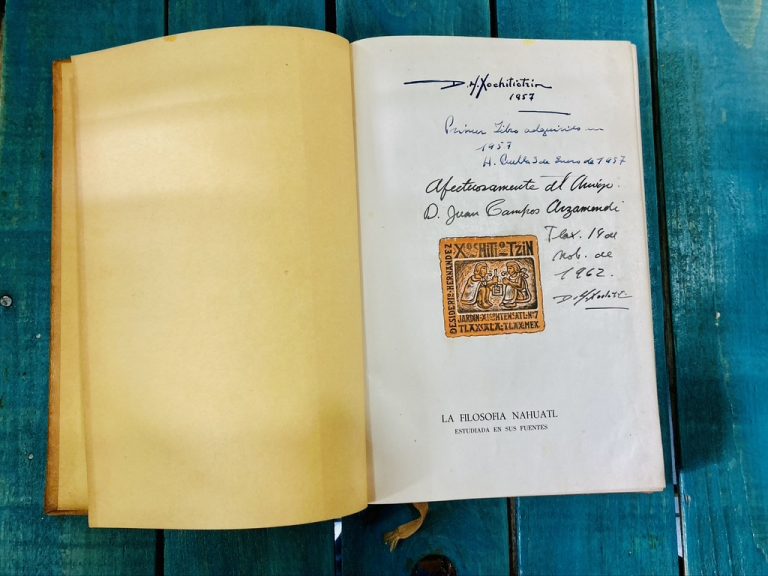 D. H. Xochitiotzin
1957
Primer Libro adquirido en
1957
H. Puebla 3 de Enero de 1957
Afectuosamente al Amigo.
D. Juan Campos Arzamendi
Tlax. 14 de
Nob. de
1962.
D. H. Xochitl
DESIDERIO·HERNANDEZ
XOCHITIOTZIN
JARDIN·XICOHTENCATL·Nº7
TLAXCALA;TLAX·MEX·
LA FILOSOFIA NAHUATL
ESTUDIADA EN SUS FUENTES